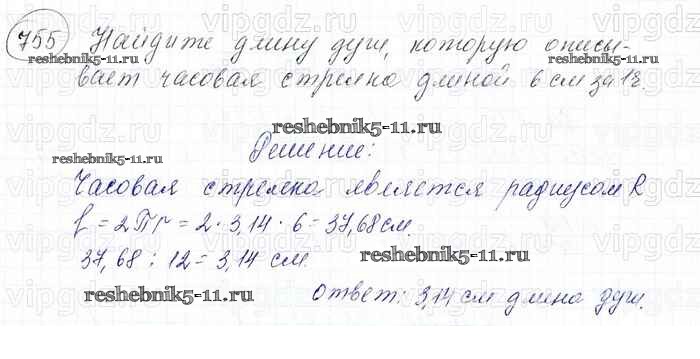 755 Найдите длину дуги, которую описы-
вает часовая стрелка длиной 6 см за 1 ч.
Решение:
Часовая стрелка является радиусом R
l = 2Пr = 2 · 3,14 · 6 = 37,68 см.
37,68 : 12 = 3,14 см.
Ответ: 3,14 см длина дуги.
reshebnik5-11.ru
reshebnik5-11.ru
reshebnik5-11.ru
reshebnik5-11.ru
reshebnik5-11.ru
reshebnik5-11.ru
vipgdz.ru